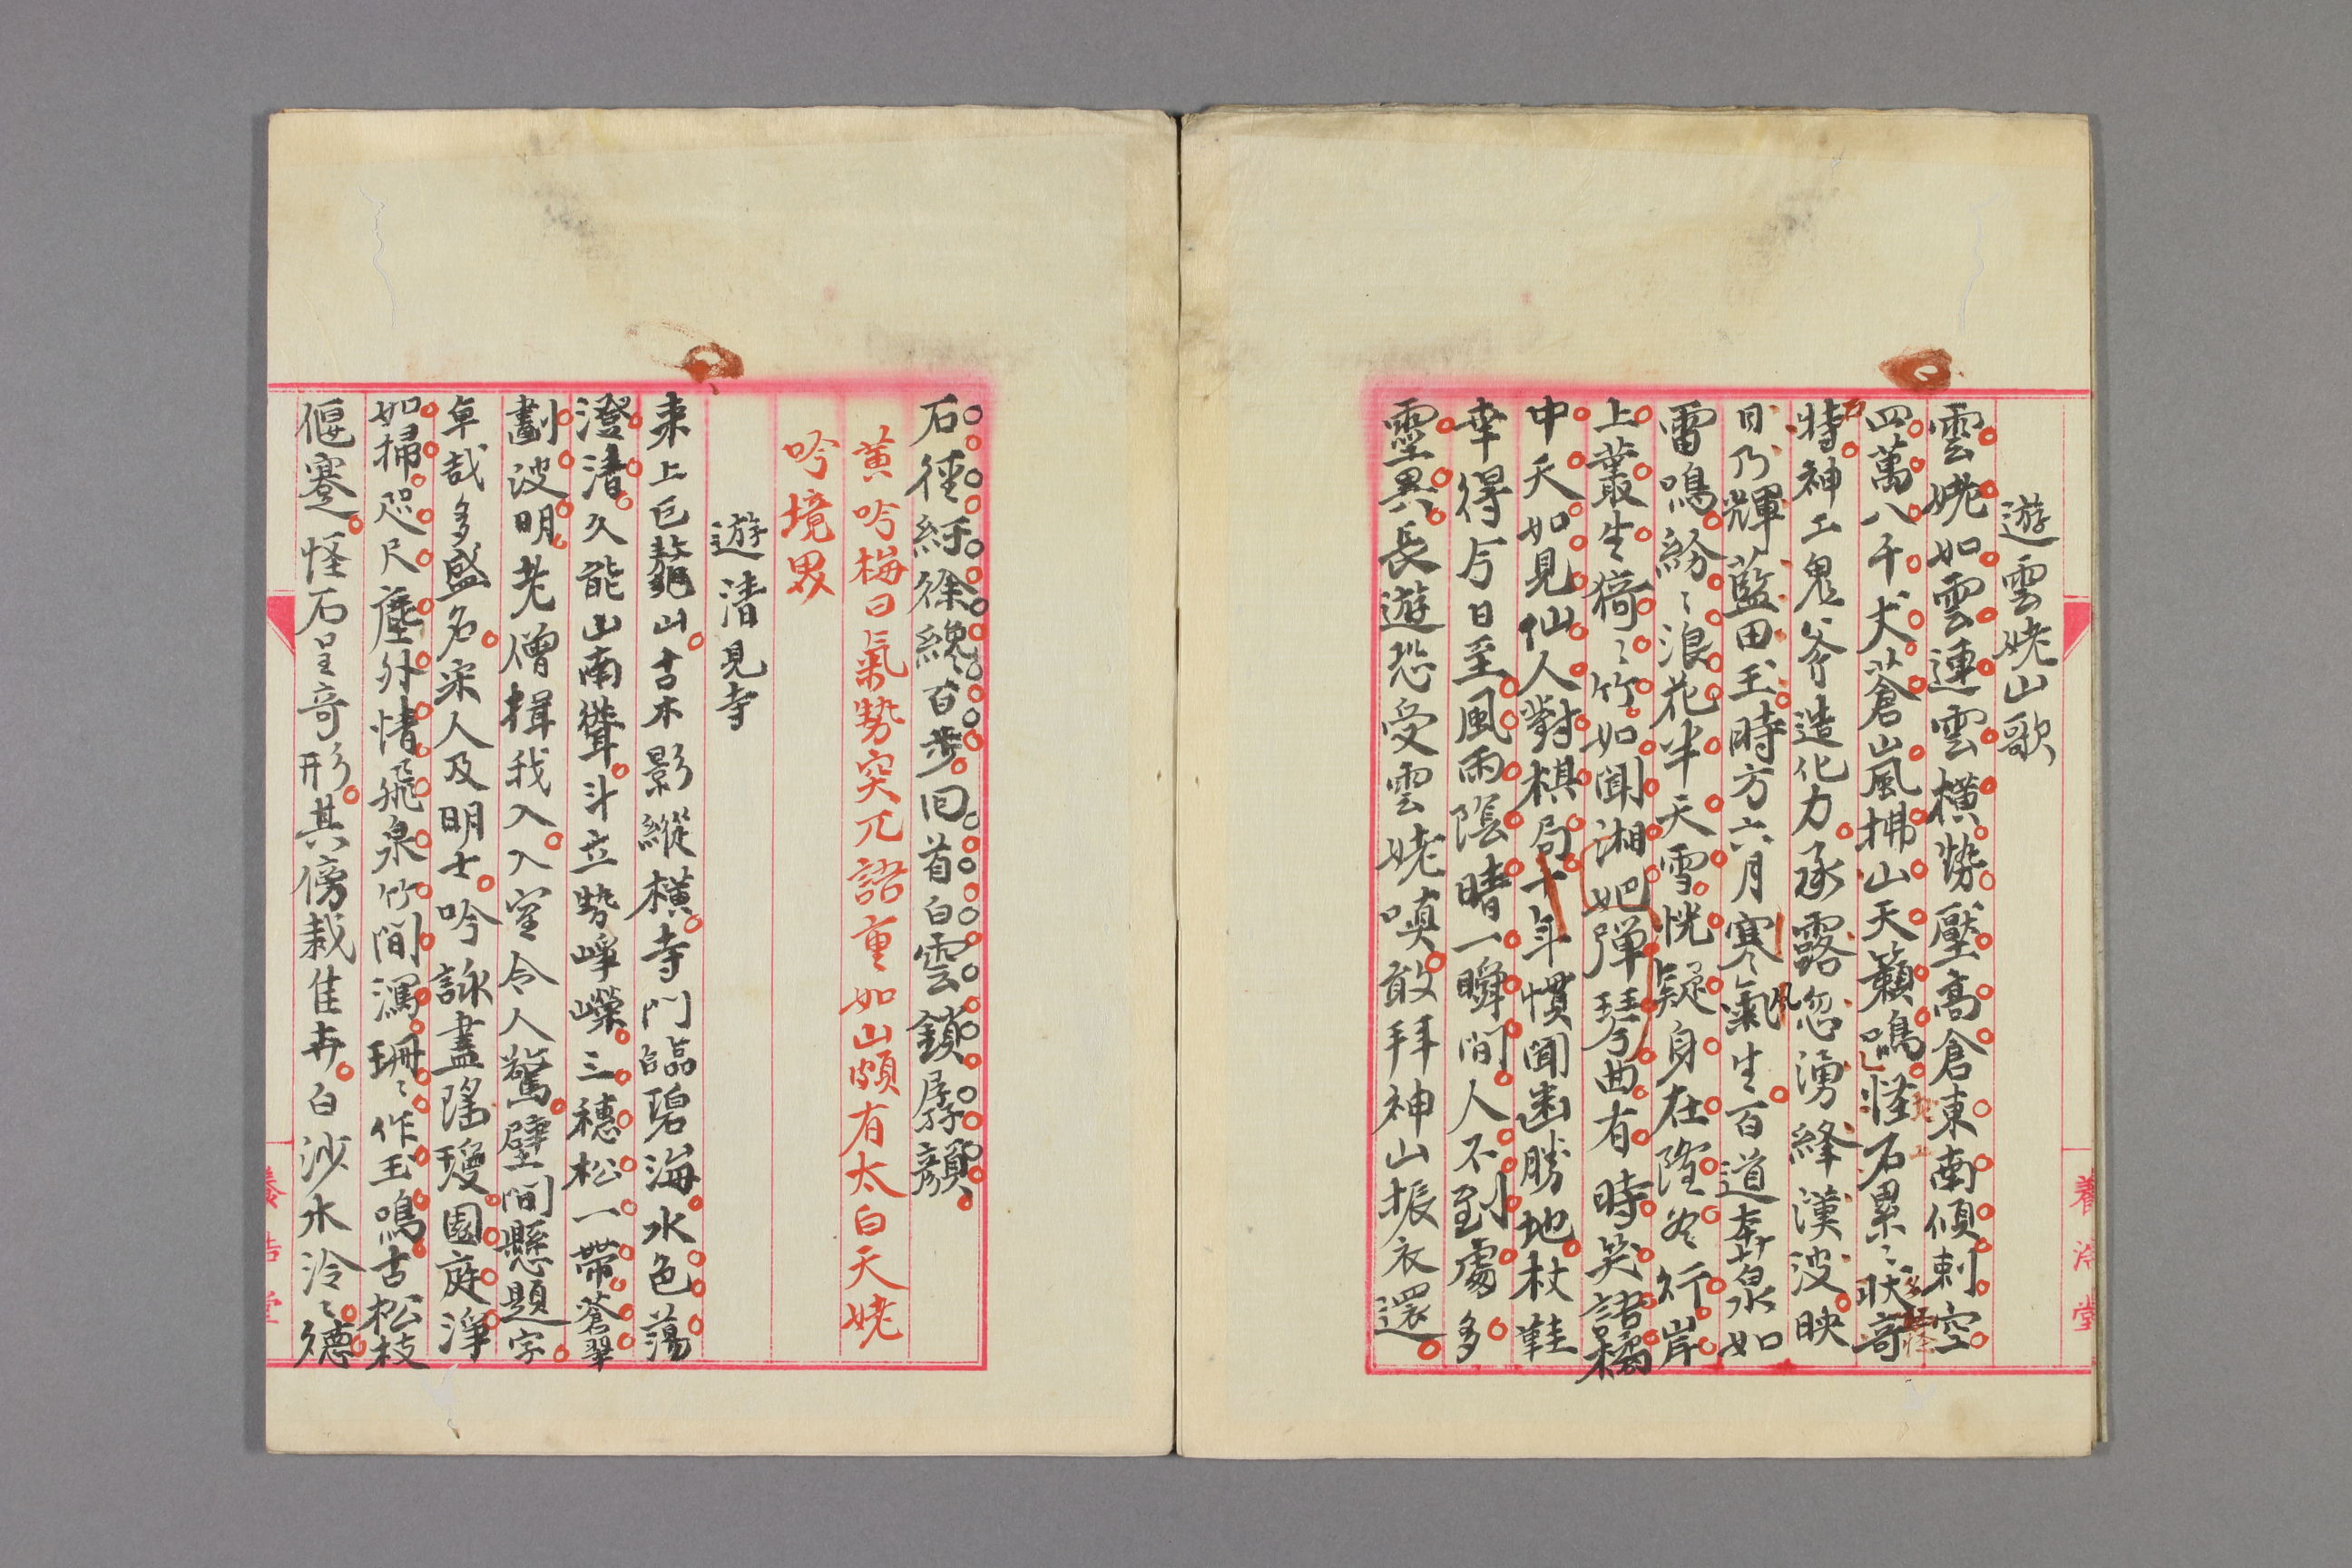 遊雲姥山歌
雲姥如雲連雲橫勢壓高倉東南傾刺空
四萬八千丈蒼山風拂山天籟鳴怪石累〻狀奇
特神工鬼斧造化力承露忽湧絳漢波映
日乃輝藍田玉時方六月寒氣生百道奔泉如
雷鳴紛〻浪花半天雪恍疑身在陰岑行岸
上叢生猗〻竹如聞湘妃彈琴曲有時笑語橘
中天如見仙人對棋局十年慣聞幽勝地杖鞋
幸得今日至風雨陰晴一瞬間人不到處多
靈異長遊恐受雲姥嗔敢拜神山振衣還
石徑紆徐纔百步回首白雲鎖孱顏
黃吟梅曰氣勢突兀語重如山頗有太白天姥
吟境界
遊清見寺
來上巨鼇山古木影縱橫寺門臨碧海水色蕩
澄清久能山南聳斗立勢崢嶸三穗松一帶蒼翠
劃波明老僧揖我入入室令人驚壁間懸題字
卓哉多盛名宋人及明士吟詠盡瑤瓊園庭淨
如掃咫尺塵外情飛泉竹間瀉珊〻作玉鳴古松枝
偃蹇怪石呈奇形其傍栽佳卉白沙水泠〻德
養浩堂
養浩堂